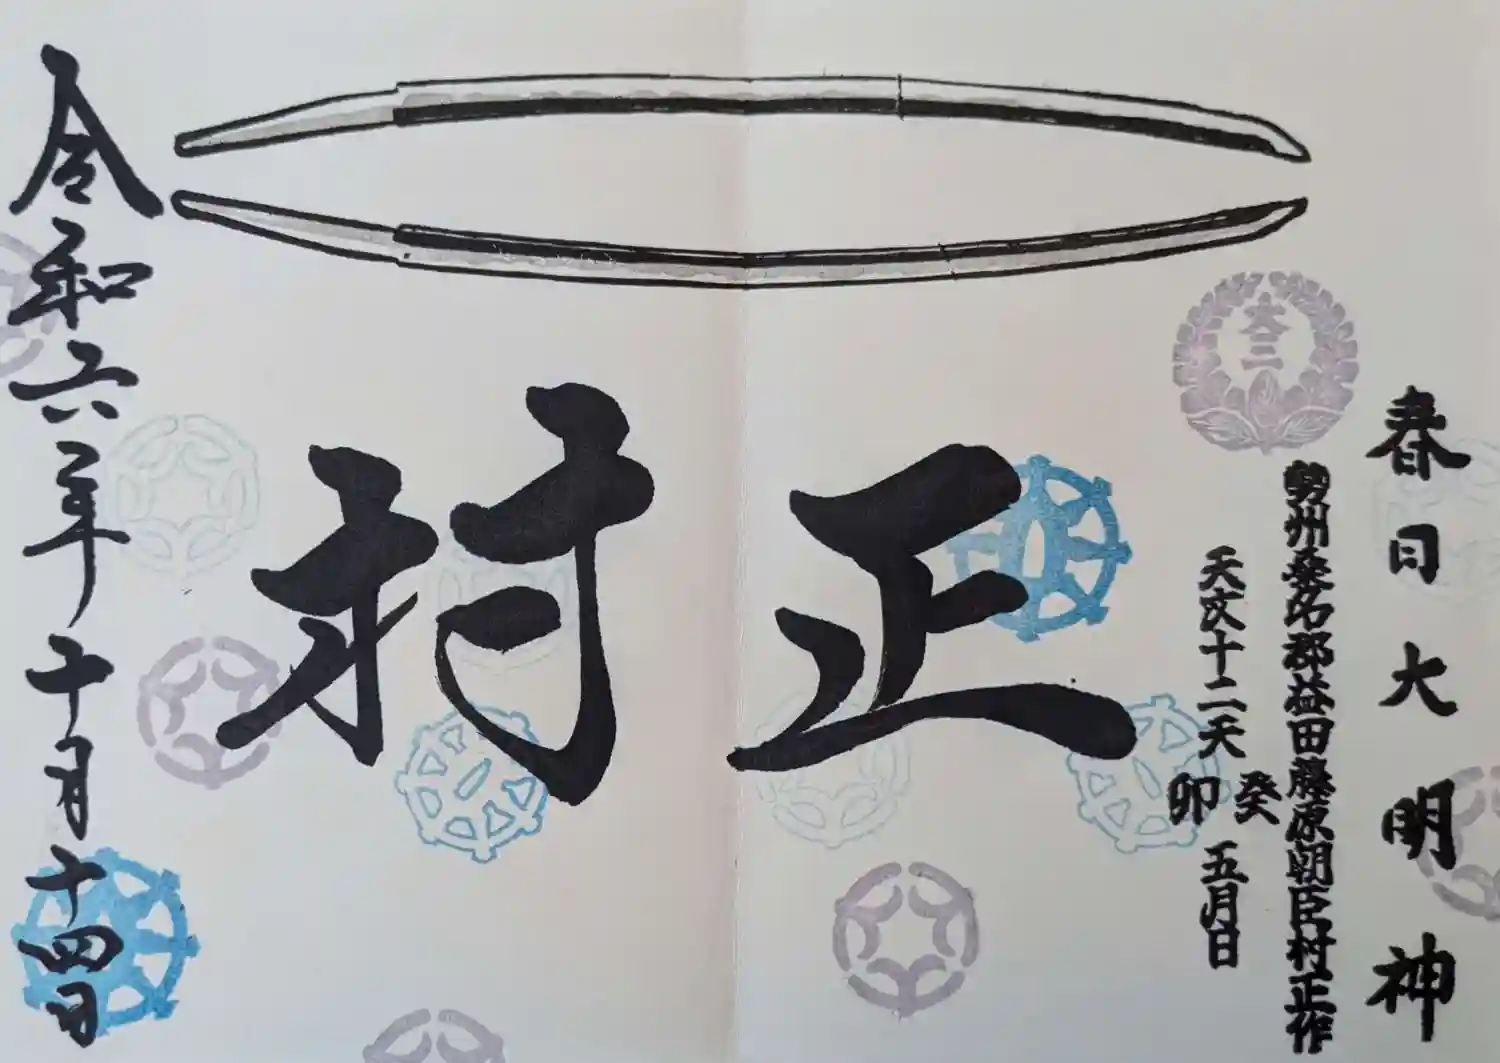 春日大明神
勢州桑名郡益田藤原朝臣村正作
天文十二天癸卯五月日
大三
正
村
令和六年十月十四日